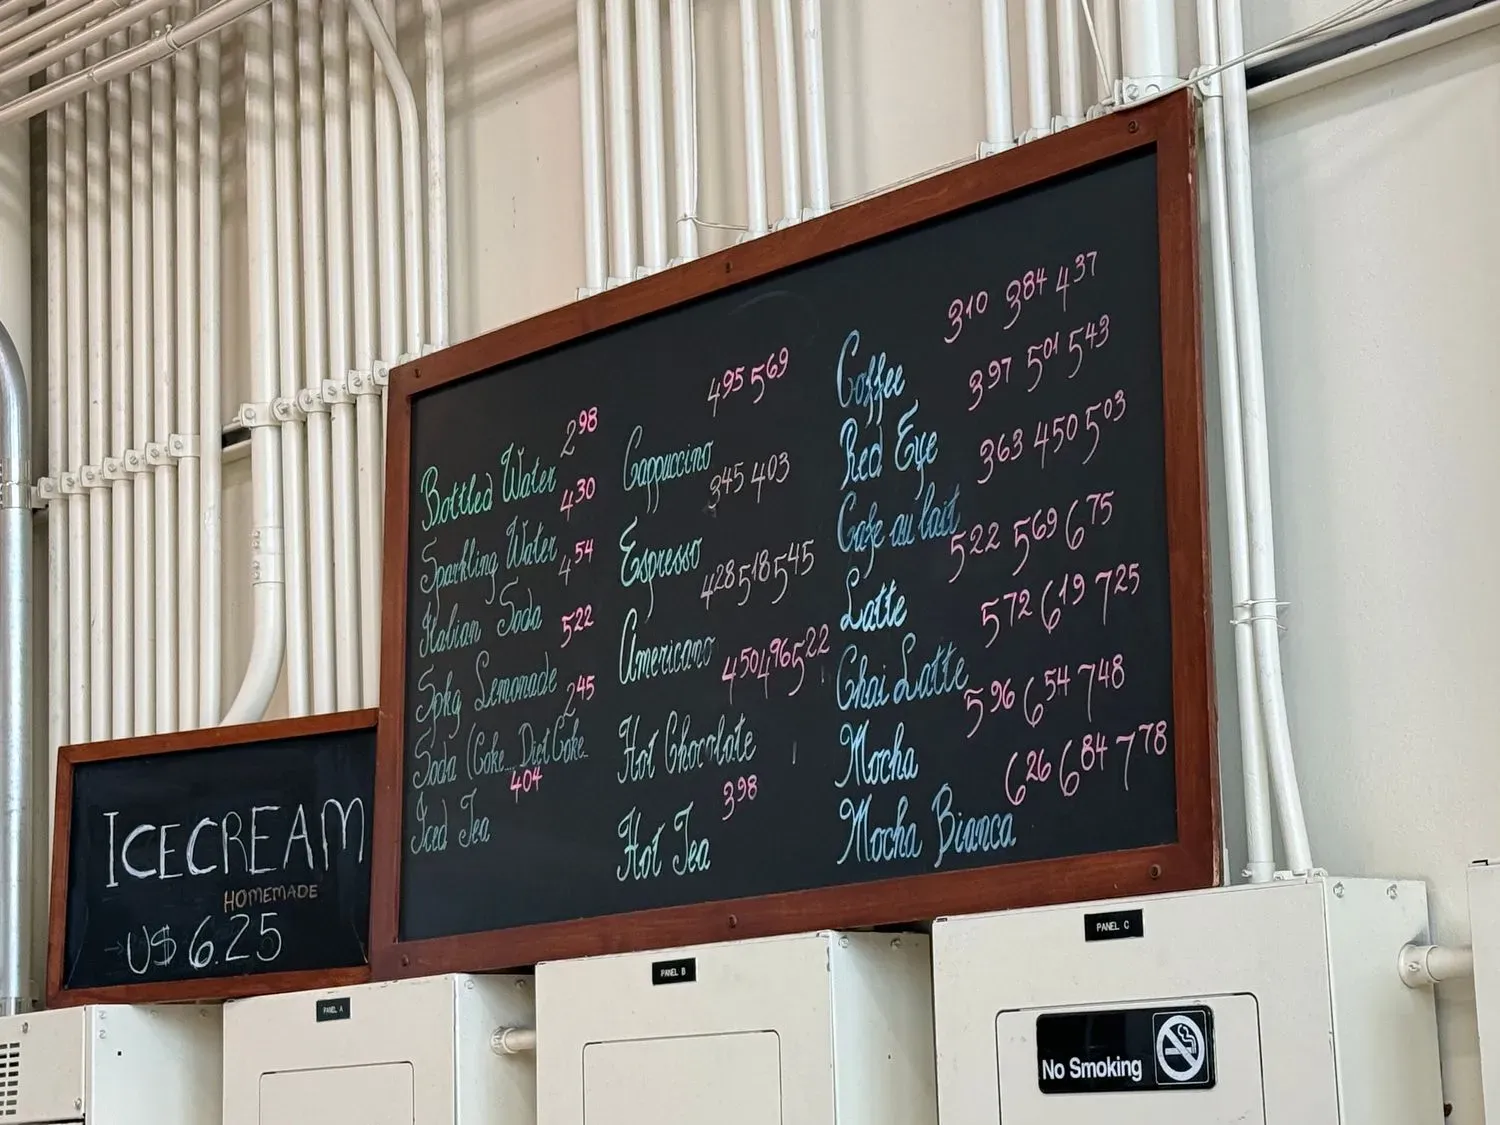 Bottled Water 2.98
Sparkling Water 4.30
Italian Soda 4.54
Spkg Lemonade 5.22
Soda (Coke... Diet Coke. 2.45
Iced Tea 4.04
Cappuccino 4.95 5.69
Espresso 3.45 4.03
Americano 4.28 5.18 5.45
Hot Chocolate 4.50 4.96 5.22
Hot Tea 3.98
Coffee 3.10 3.84 4.37
Red Eye 3.97 5.01 5.43
Cafe au lait 3.63 4.50 5.03
Latte 5.22 5.69 6.75
Chai Latte 5.72 6.19 7.25
Mocha 5.96 6.54 7.48
Mocha Bianca 6.26 6.84 7.78
ICECREAM
HOMEMADE
U$ 6.25
PANEL A
PANEL B
PANEL C
No Smoking